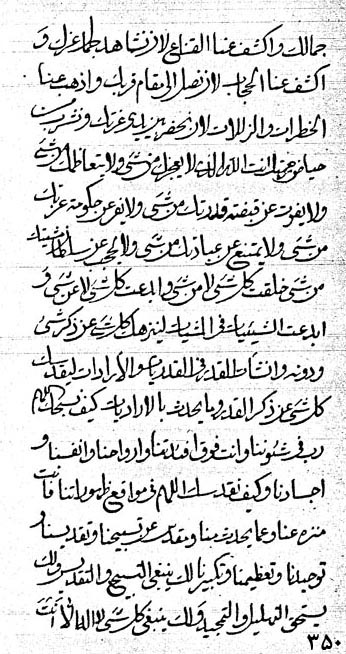 جمالك واكشف عنا القناع لان نشاهد جلال عزك و
اكشف عنا الحجاب لان نصل الى مقام قربك واذهب عنا
الخطرات والزلات لان نحضر بين يدى عزتك ونشرب من
حياض انت الله الذى لا يعجزك من شىء ولا يتعاظمك من شىء
ولا يفوت عن قبضة قدرتك من شىء ولا يفر عن حكومة عزتك
من شىء ولا يمتنع عن عبادتك من شىء ولا عن
من شىء خلقت كلشىء لا من شىء وابدعت كلشىء لا عن شىء و
ابدعت الشيئيات فى الشيئيات لينزهك كلشىء عن ذكر شىء
ودونه وانشات القدر فى القدريات والارادات ليقدسك
كلشىء عن ذكر القدر وما يحدث بالارادات كيف نسبحك اللهم
رب فى شئوننا وانت فوق افئدتنا وارواحنا وانفسنا و
اجسادنا وكيف نقدسك اللهم فى مواقع ظهوراتنا فانت
منزه عنا وعما يحدث بنا ومقدس عن تسبيحنا وتقديسنا و
توحيدنا وتعظيمنا وتكبيرنا لك ينبغى التسبيح والتقديس ولك
يستحق التهليل والتمجيد ولك ينبغى كلشىء لا اله الا انت
٣٥٠